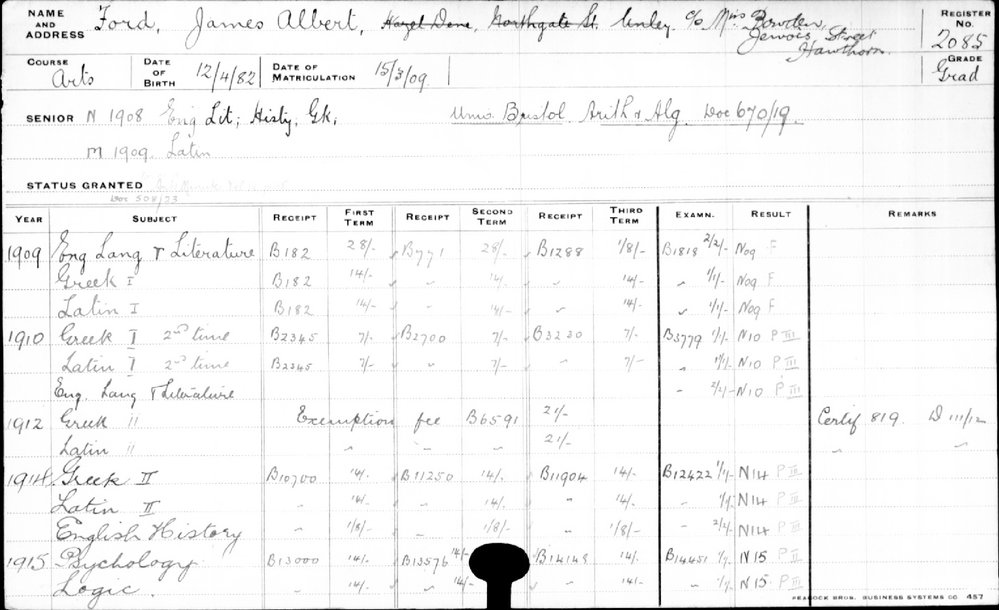 NAME AND ADDRESS Ford, James Albert, Hazel Dene, Northgate St. Unley. c/o Miss Bowden, Jervois Street Hawthorn. REGISTER No. 2085
COURSE Arts DATE OF BIRTH 12/4/82 DATE OF MATRICULATION 15/3/09 GRADE Grad
SENIOR N 1908 Eng Lit; Histy; Gk; Univ. Bristol Arith & Alg. Doc 670/19.
M 1909. Latin
STATUS GRANTED
Doc 508/23
YEAR SUBJECT RECEIPT FIRST TERM RECEIPT SECOND TERM RECEIPT THIRD TERM EXAMN. RESULT REMARKS
1909 Eng Lang & Literature B182 28/- B771 28/- B1288 1/8/- B1818 2/2/- N09 F
Greek I B182 14/- " 14/- " 14/- " 1/1/- N09 F
Latin I B182 14/- " 14/- " 14/- " 1/1/- N09 F
1910 Greek I 2nd time B2345 7/- B2700 7/- B3230 7/- B3779 1/1/- N10 P III
Latin I 2nd time B2345 7/- " 7/- " 7/- " 1/1/- N10 P III
Eng. Lang & Literature " 2/2/- N10 P III
1912 Greek " Exemption fee B6591 21/- Certif 819. D 111/12
Latin " " " " 21/- " "
1914 Greek II B10700 14/- B11250 14/- B11904 14/- B12422 1/1/- N14 P III
Latin II " 14/- 14/- " 14/- " 1/1/- N14 P III
English History " 1/8/- 1/8/- " 1/8/- " 2/2/- N14 P III
1915 Psychology B13000 14/- B13576 14/- B14149 14/- B14451 1/1/- N15 P II
Logic. " 14/- " 14/- " 14/- " 1/1/- N15 P III
PEACOCK BROS. BUSINESS SYSTEMS CO 457